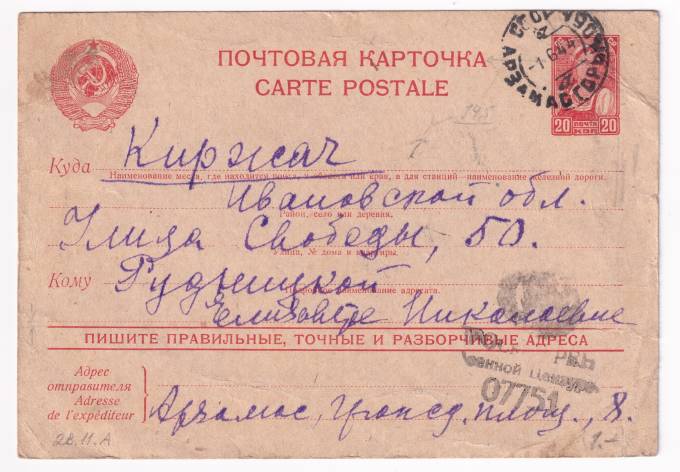 ПОЧТОВАЯ КАРТОЧКА
CARTE POSTALE
20 ПОЧТА 20
КОП
145
Куда Киржач
Наименование места, где находится почта, и области или края, а для станций - наименование железной дороги.
Ивановской обл.
Район, село или деревня.
Улица Свободы, 50.
Улица, № дома и квартиры.
Кому Рудницкой
наименование адресата.
Елизавете Николаевне
ПИШИТЕ ПРАВИЛЬНЫЕ, ТОЧНЫЕ И РАЗБОРЧИВЫЕ АДРЕСА
енной Цензурой
07751
Адрес
отправителя
Adresse
de l'expéditeur
Арзамас, площ., 8.
28.11.А
1.-